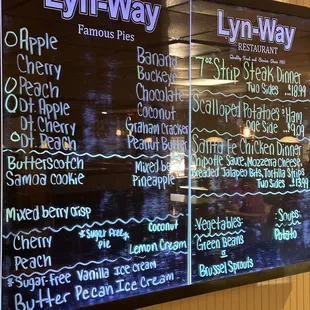 Lyn-Way
Famous Pies
Apple
Cherry
Peach
Dt. Apple
Dt. Cherry
Dt. Peach
Butterscotch
Samoa Cookie
Banana
Buckeye
Chocolate
Coconut
Graham Cracker
Peanut Butter
Mixed
Pineapple
Mixed berry crisp
Cherry
Peach
*Sugar Free*
pie
Coconut
Lemon Cream
*Sugar-Free Vanilla Ice cream
Butter Pecan Ice Cream
Lyn-Way
RESTAURANT
7oz Strip Steak Dinner
Two Sides 18.99
Scalloped Potatoes & Ham
One Side 9.09
Santa Fe Chicken Dinner
Chipotle Sauce, Mozzerella Cheese,
Breaded Jalapeño Bits, Tortilla Strips
Two Sides 13.99
Vegetables:
Green Beans
or
Brussel Sprouts
Soups:
Potato